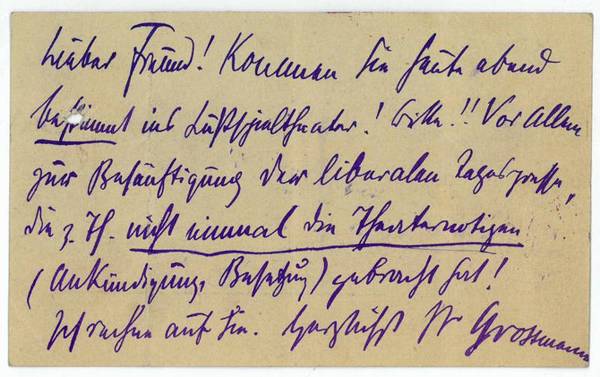 Lieber Freund! Kommen Sie heute abend
bestimmt ins Lustspieltheater! Bitte!! Vor Allem
zur Besänftigung der liberalen Tagespresse,
die z. Th. nicht einmal die Theaternotizen
(Ankündigung, Besetzung) gebracht hat!
Ich rechne auf Sie. Herzlichst Ihr Grossmann